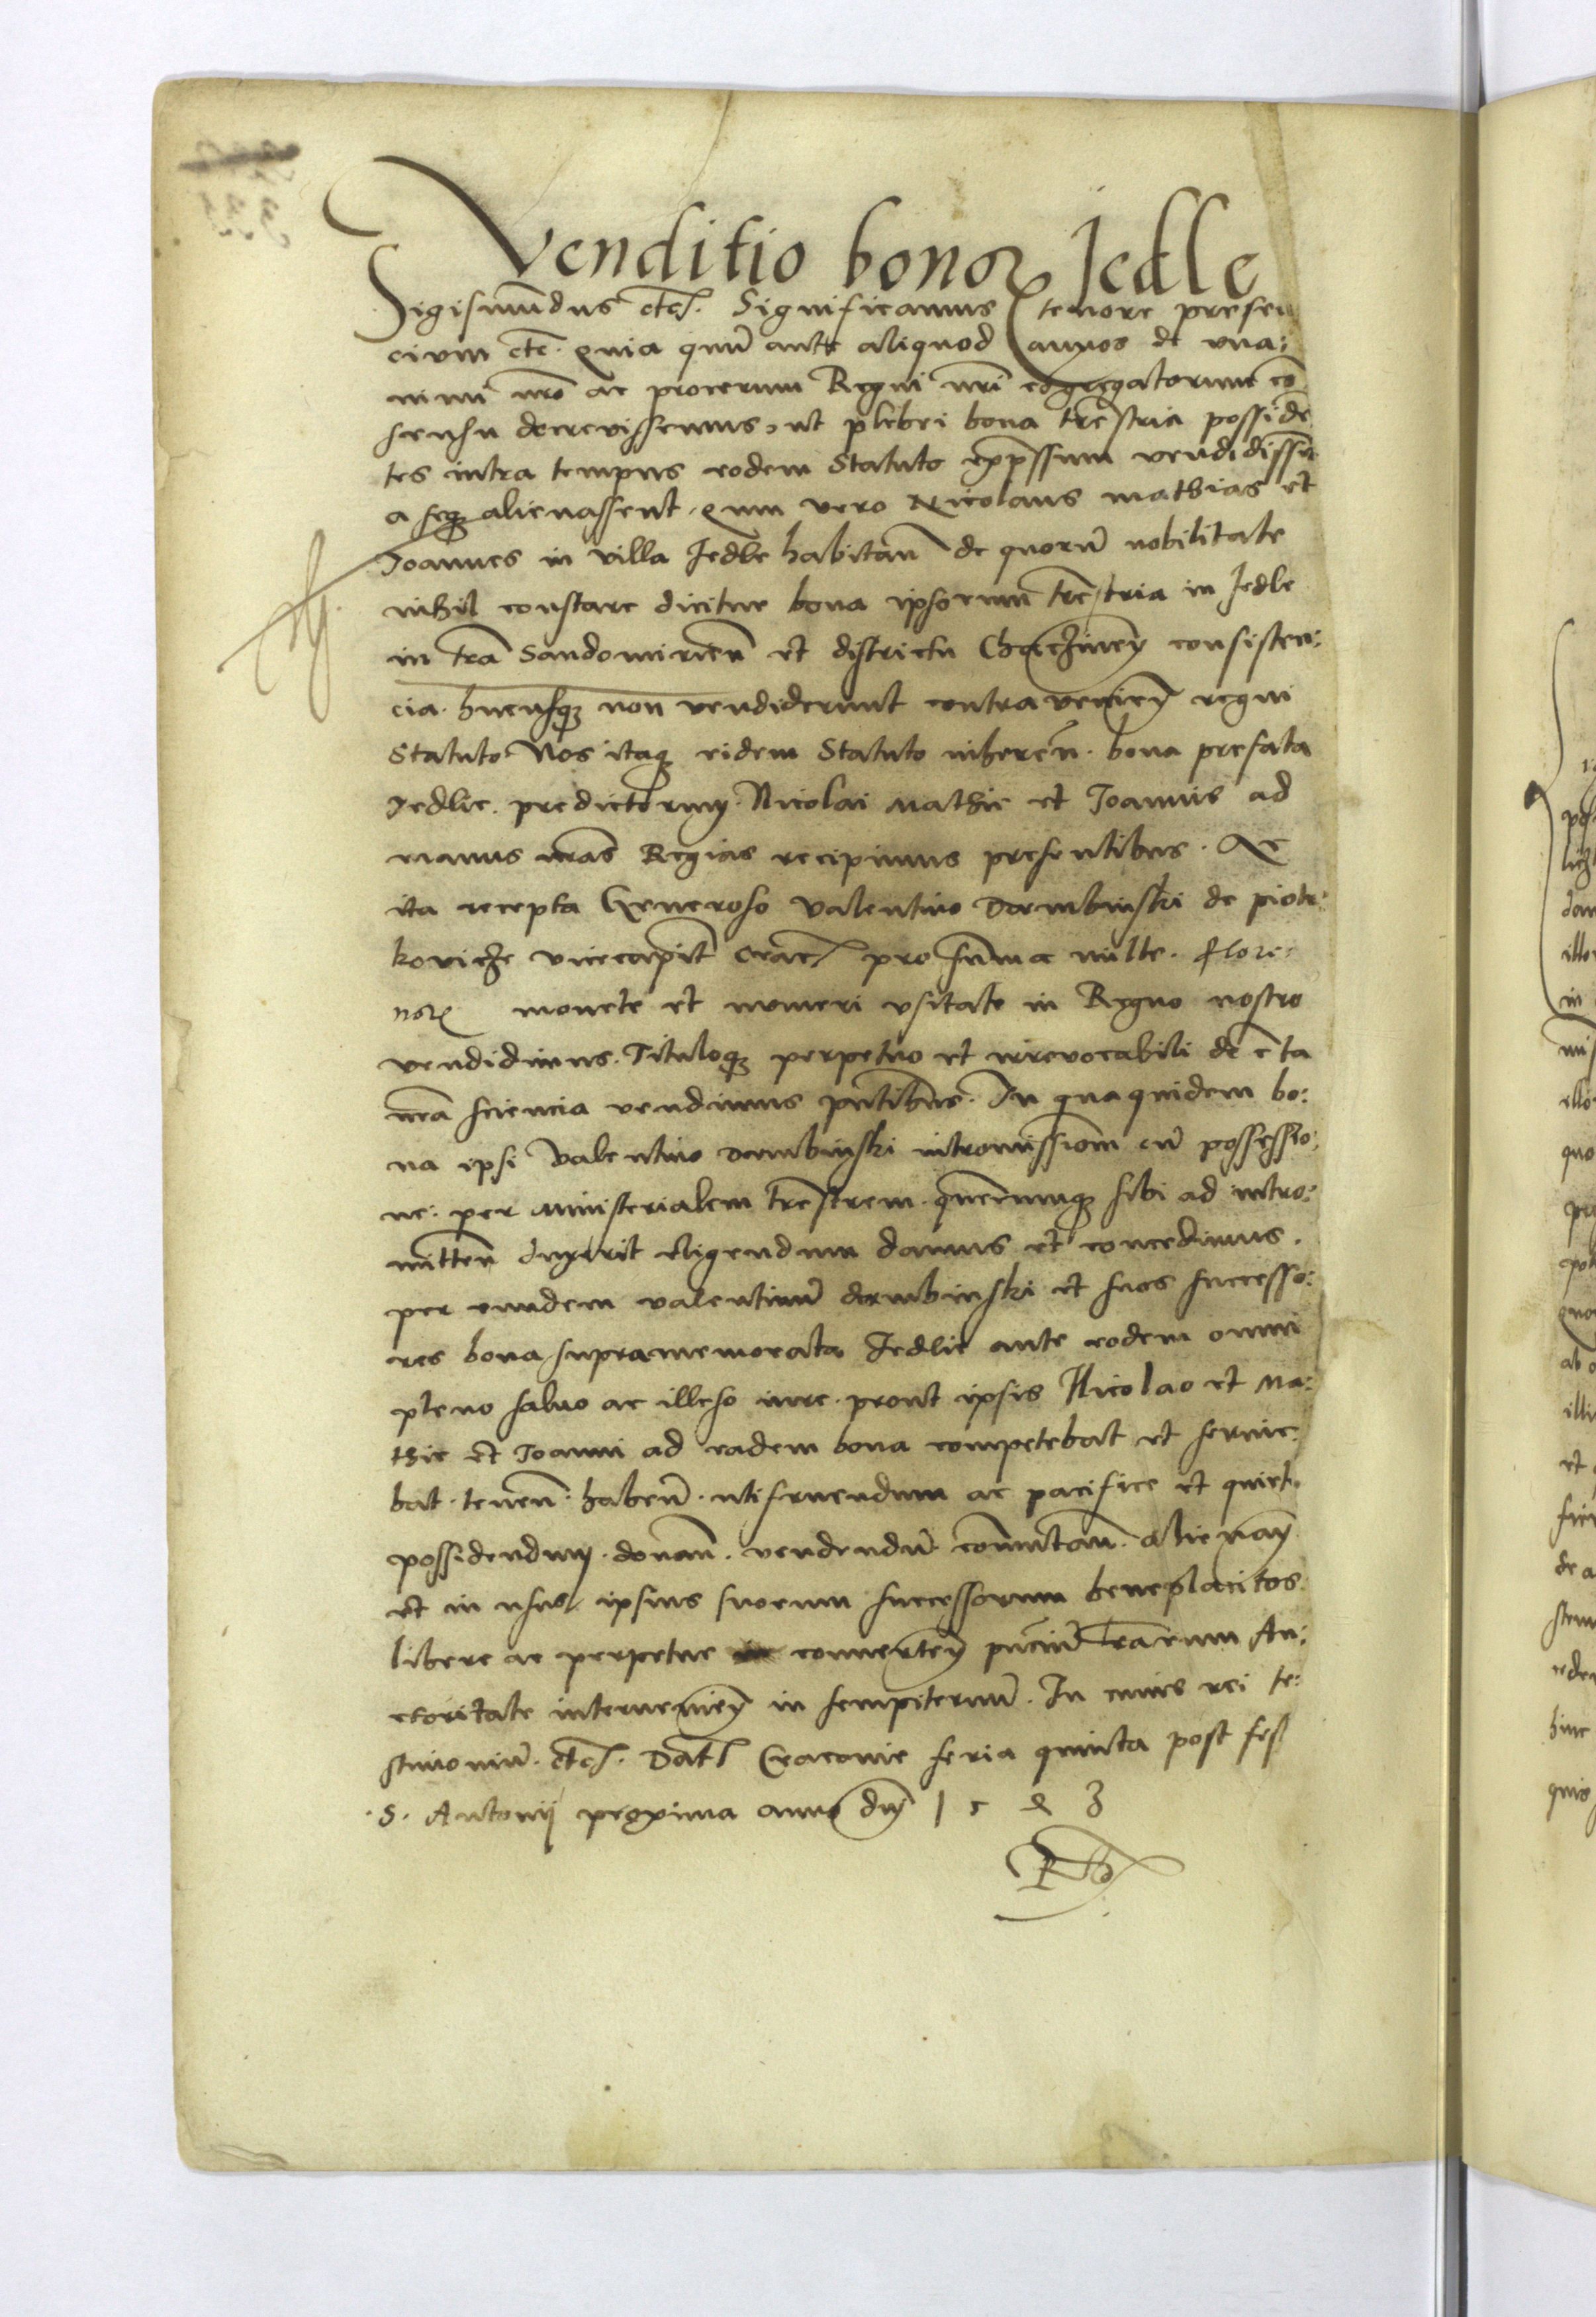 Venditio bonor Jedle
Sigismundus etc. Significamus tenore presen
cium etc. Quia qum ante aliquod annos de vna:
nimi nro ac procerum Regni nri cogregatorum co
sensu decrevissemus, ut plebei bona trestria posside
tes intra tempus eodem Statuto expssum vendidissent
a seq alienassent. Qum vero Nicolaus Mathias et
Joannes in villa Jedle habitan de quorum nobilitate
nihil constare dicitur bona ipsorum trestria in Jedle
in tra Sandomirien et districtu Chacziney consisten:
cia. hucusq non vendiderunt contraveniey regni
Statuto. Nos itaq eidem Statuto inheren. bona prefata
Jedlie. predictorum. Nicolai Mathie et Joannis ad
manus nras Regias recipimus presentibus. Ac
ita recepta Generoso Valentino Dembinski de piotr:
kovicze vicecapit Crac pro summa mille. flore:
nor monete et numeri vsitate in Regno nostro
vendidimus. Tituloq perpetuo et irrevocabili de cta
nra sciencia vendimus pntibus. In qua quidem bo:
na ipsi Valentino Dembinski intromissiom cum possessio:
ne: per ministerialem trestrem. quemcumq sibi ad intro:
mitten duxerit eligendum damus et concedimus.
per eundem valentinum dembinski et suos successo:
res bona supramemorata Jedlie ante eodem omni
pleno saluo ac illeso iure. prout ipsis Nicolao et Ma:
thie et Joanni ad eadem bona competebat et seruie:
bat. tenen. haben. utifruendum ac pacifice et quiete
possidendum. donan. vendendum. commutan. alienay
et in usus ipsius suorum successorum beneplacitos.
libere ac perpetue convertey pncium lrarum Au:
ctoritate interueniey in sempiternum. In cuius rei te:
stimonium. etc. Dat Cracovie feria quinta post fest
S. Antonij proxima anno dny 1 5 2 3